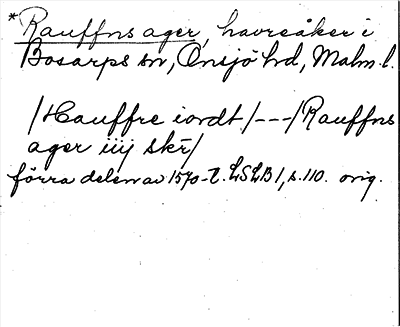 *Rauffns ager, havreåker i
Bosarps sn, Onsjö hd, Malm. l.
/Hauffre iordt/---/Rauffns
ager iiij skr/
förra delen av 1570-t. LSLB 1, s. 110. orig.